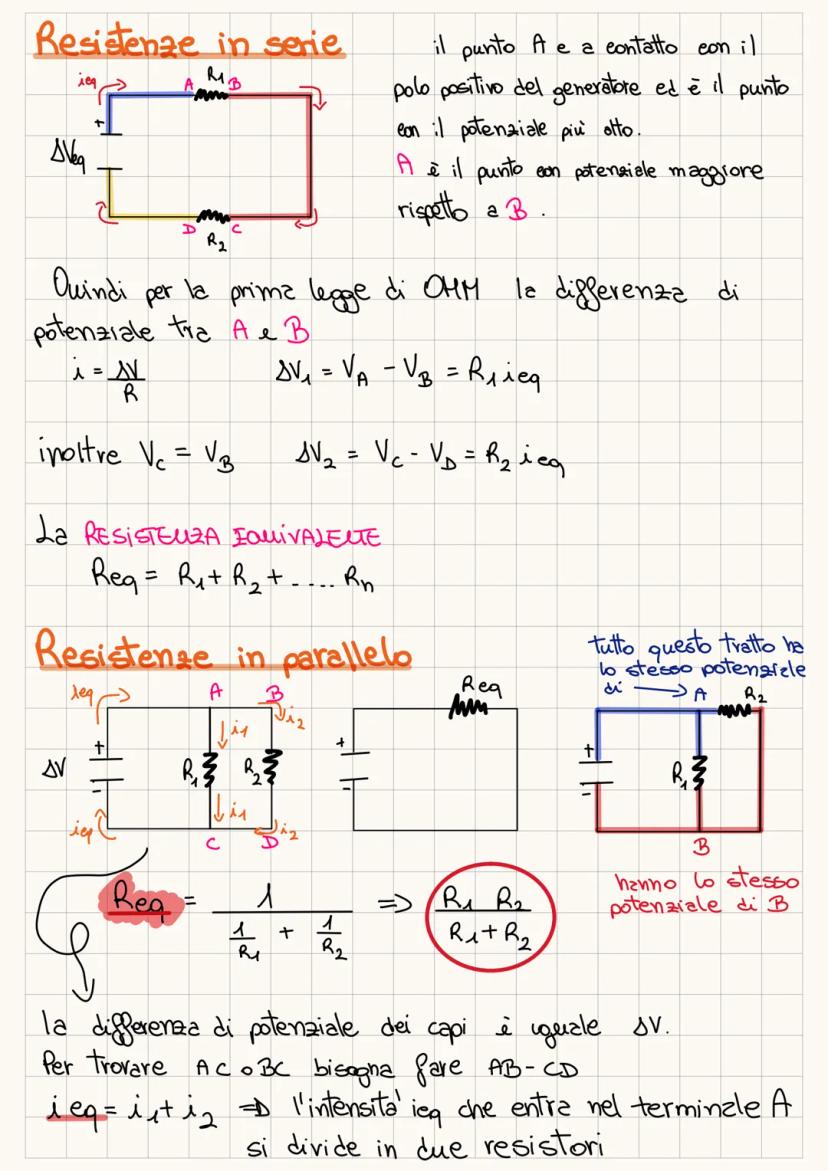 Resistenze in serie
il punto A e a contatto con il
polo positivo del generatore ed è il punto
con il potenziale più alto.
A è il punto con potenziale maggiore
rispetto a B.
ieq
A R1 B
+
ΔVeq
D R2 C
Quindi per la prima legge di OHM la differenza di
potenziale tra A e B
i = ΔV/R ΔV1 = VA - VB = R1 ieq
inoltre VC = VB ΔV2 = VC - VD = R2 ieq
La RESISTENZA EQUIVALENTE
Req = R1 + R2 + .... Rn
Resistenze in parallelo
tutto questo tratto ha
lo stesso potenziale
di → A R2
ieq A B
i1 i2
+
ΔV R1 R2
-
ieq i1 i2
C D
Req
+
-
+
R1
-
B
hanno lo stesso
potenziale di B
Req = 1 / (1/R1 + 1/R2) => R1 R2 / (R1 + R2)
la differenza di potenziale dei capi è uguale ΔV.
Per trovare AC o BC bisogna fare AB-CD
ieq = i1 + i2 => l'intensità ieq che entra nel terminale A
si divide in due resistori